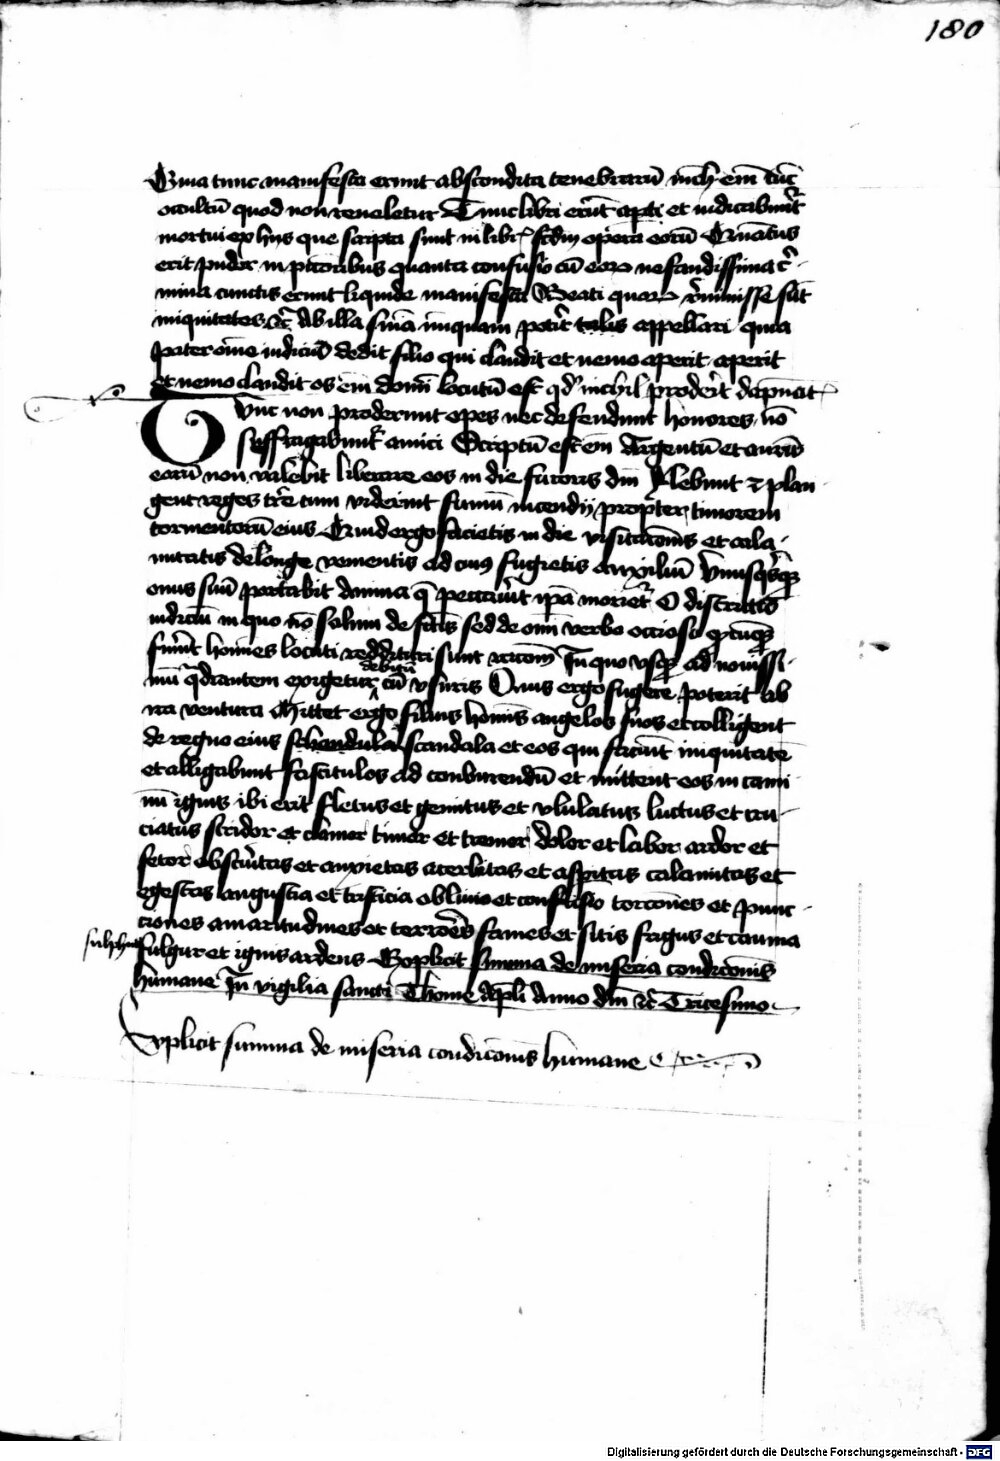 180
Quia tunc manifesta erunt abscondita tenebrarũ nichˡ em̃
occultũ quod non reueletur Tunc libri erũt apti et iudicabunt᷑
mortui ex hijs que scripta sunt in libr᷑ scdm̃ opera eorũ
erit pudor in pctõribus quanta confusio cũ eoꝝ nefandissima c᷑
mina cunctis erunt liquide manifesta Beati quoꝝ r᷑misse sũt
iniquitates ⁊c̃ Ab illa snĩa nunquam potit᷑ talis appellari quia
pater om̃e iudiciũ dedit filio qui claudit et nemo aperit aperit
et nemo claudit os em̃ domĩ locutũ est
Tunc non proderunt opes nec defendunt honores nõ
suffragabunt᷑ amici Scriptũ est em̃ Argentũ et aurũ
eorũ non valebit liberare eos in die furoris dnĩ Plebunt ⁊ plan
gent reges tr̃e cum viderint fumũ incendij propter timorem
tormentorũ eius Quid ergo facietis in die visitacõnis et cala
mitatis de longe venientis ad cuiꝰ fugietis auxiliũ vnusqˢqꝫ
onus suũ portabit Anima q̃ peccauit᷑ ip̃a moriet᷑ O districtũ
iudiciũ in quo nõ solum de fc̃tis sed de om̃i verbo occioso qdcũqꝫ
fuerĩt homĩes locuti reddituri sunt rac̃onem In quo vsqꝫ ad nouissi
mũ q̃drantem exigetur debitũ cũ vsuris Quis ergo fugere poterit ab
ira ventura Mittet ergo filius homĩs angelos suos et colligent
de regno eius schandula scandala et eos qui faciũt iniquitatẽ
et alligabunt fasciculos ad conburendũ et mittent eos in cami
nũ ignis ibi erit fletus et gemitus et vlulatus luctus et cru
ciatus stridor et clamor timor et tremor dolor et labor ardor et
fetor obscũitas et anxietas acerbitas et asp̃itas calamitas et
egestas angustia et tristicia obliuio et confusio torcõnes et punc
ciones amaritudines et terrores fames et sitis frigus et cauma
sulphur fulgur et ignis ardens Explicit summa de miseria condicõnis
humane In vigilia sancti Thome apl̃i Anno dnĩ ⁊c̃ Tricesimo
Explicit summa de miseria condicõnis humane
Digitalisierung gefördert durch die Deutsche Forschungsgemeinschaft - DFG